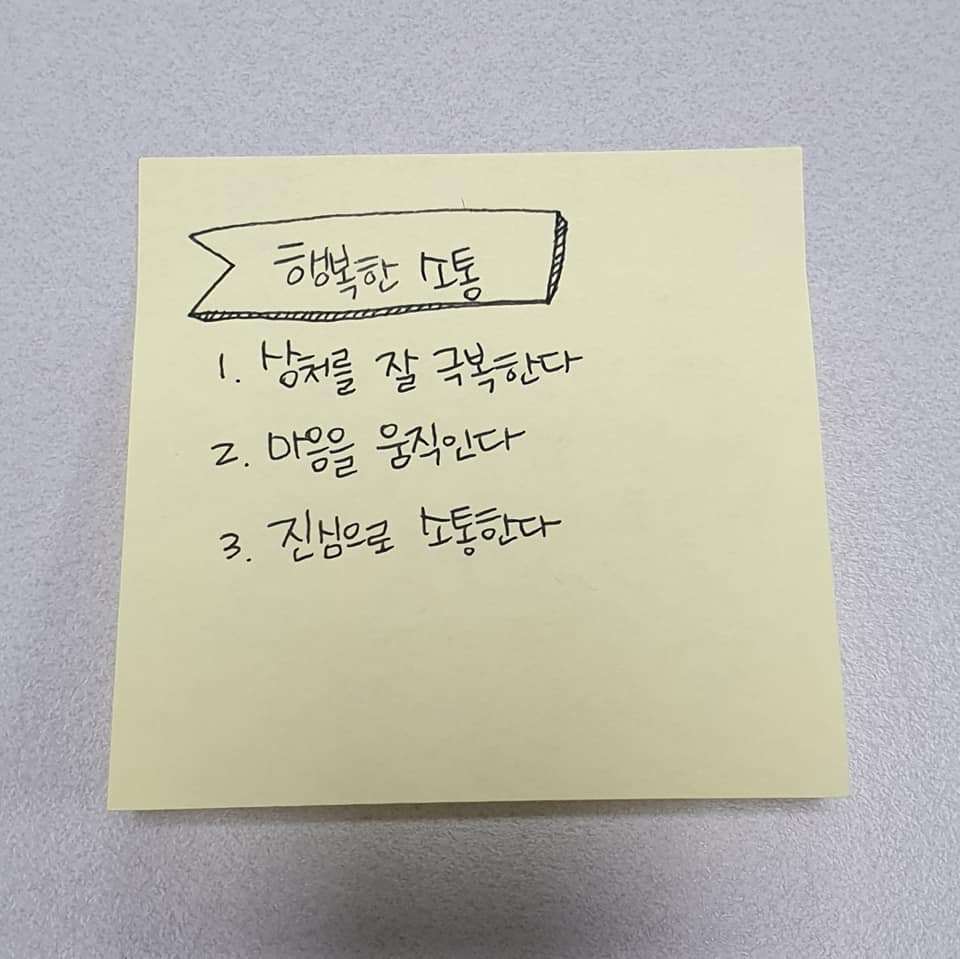 행복한 소통
1. 상처를 잘 극복한다
2. 마음을 움직인다
3. 진심으로 소통한다